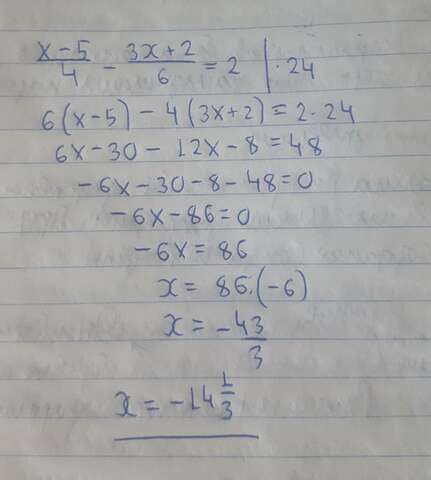 (x-5)/4 - (3x+2)/6 = 2 | · 24
6(x-5) - 4(3x+2) = 2·24
6x-30 - 12x-8 = 48
-6x-30-8-48=0
-6x-86=0
-6x = 86
x = 86·(-6)
x = -43/3
x = -14 1/3